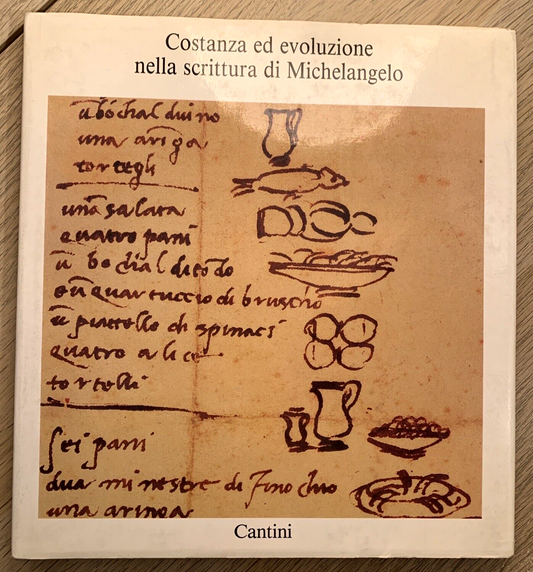 Costanza ed evoluzione
nella scrittura di Michelangelo
u͞ bochal duino
una aringa
tortegli
una salata
quatro pani
u͞ bochal di to͞do
e u͞ quartuccio di bruscho
u͞ piattello di spinaci
quatro alice
tortelli
sei pani
dua minestre di finochio
una aringa
Cantini